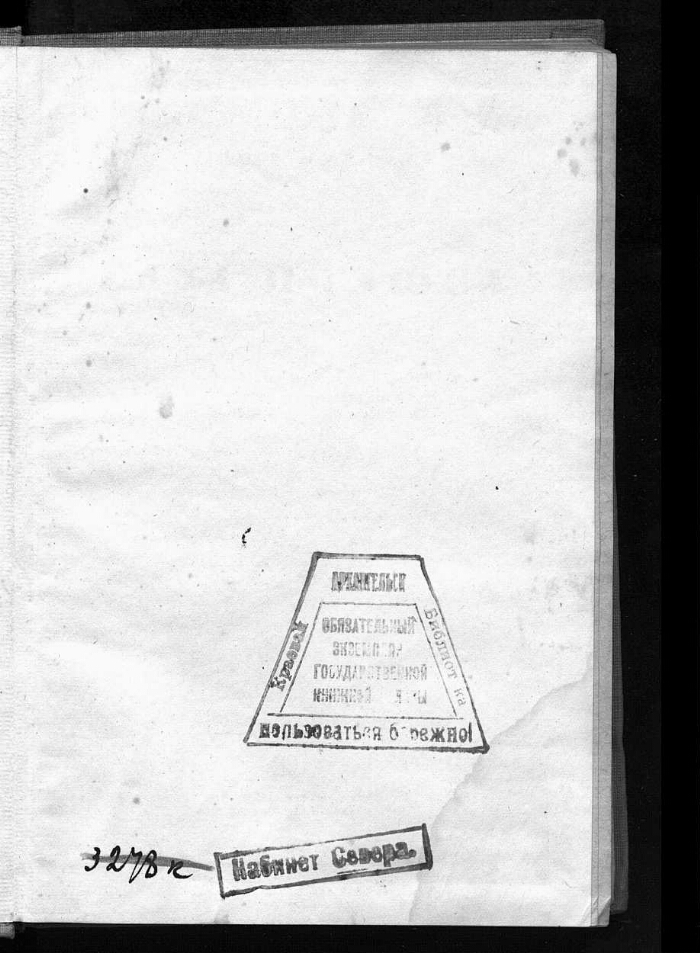 АРХАНГЕЛЬСК
Краевая
Библиот ка
ОБЯЗАТЕЛЬНЫЙ
ЭКЗЕМПЛЯР
ГОСУДАРСТВЕННОЙ
КНИЖНОЙ
пользоваться бережно!
3278к
Кабинет Севера.